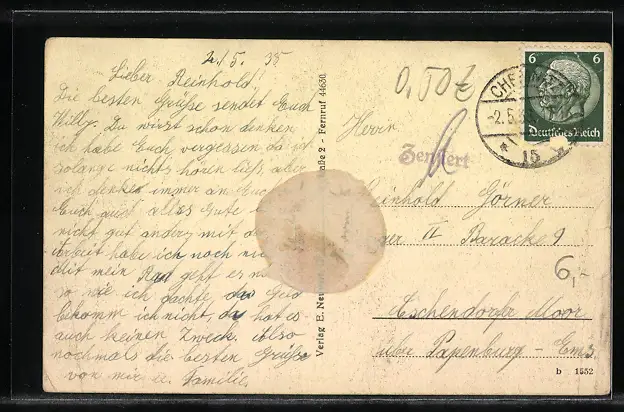 2./5. 35
Lieber Reinhold!
Die besten Grüße sendet Euch
Willy. Du wirst schon denken
ich habe Euch vergessen da ich
solange nichts hören ließ, aber
ich denke immer an Euch
Euch auch alles Gute
nicht gut anders mit de
Arbeit habe ich noch ni
Mit mein Rad geht es n
so wie ich dachte, das Geld
bekomm ich nicht, da hat es
auch keinen Zweck. Also
nochmals die besten Grüße
von mir u. Familie
Verlag E. Neu straße 2 - Fernruf 44630.
0,50
6
CHEMNITZ
-2.5.
* 15
6 6
Deutsches Reich
Herrn
Zensiert
Reinhold Görner
Lager II Baracke 9
Eschendorfer Moor
über Papenburg - Ems
6,-
b 1552